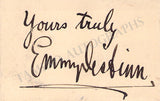 Yours truly
Emmy Destinn.